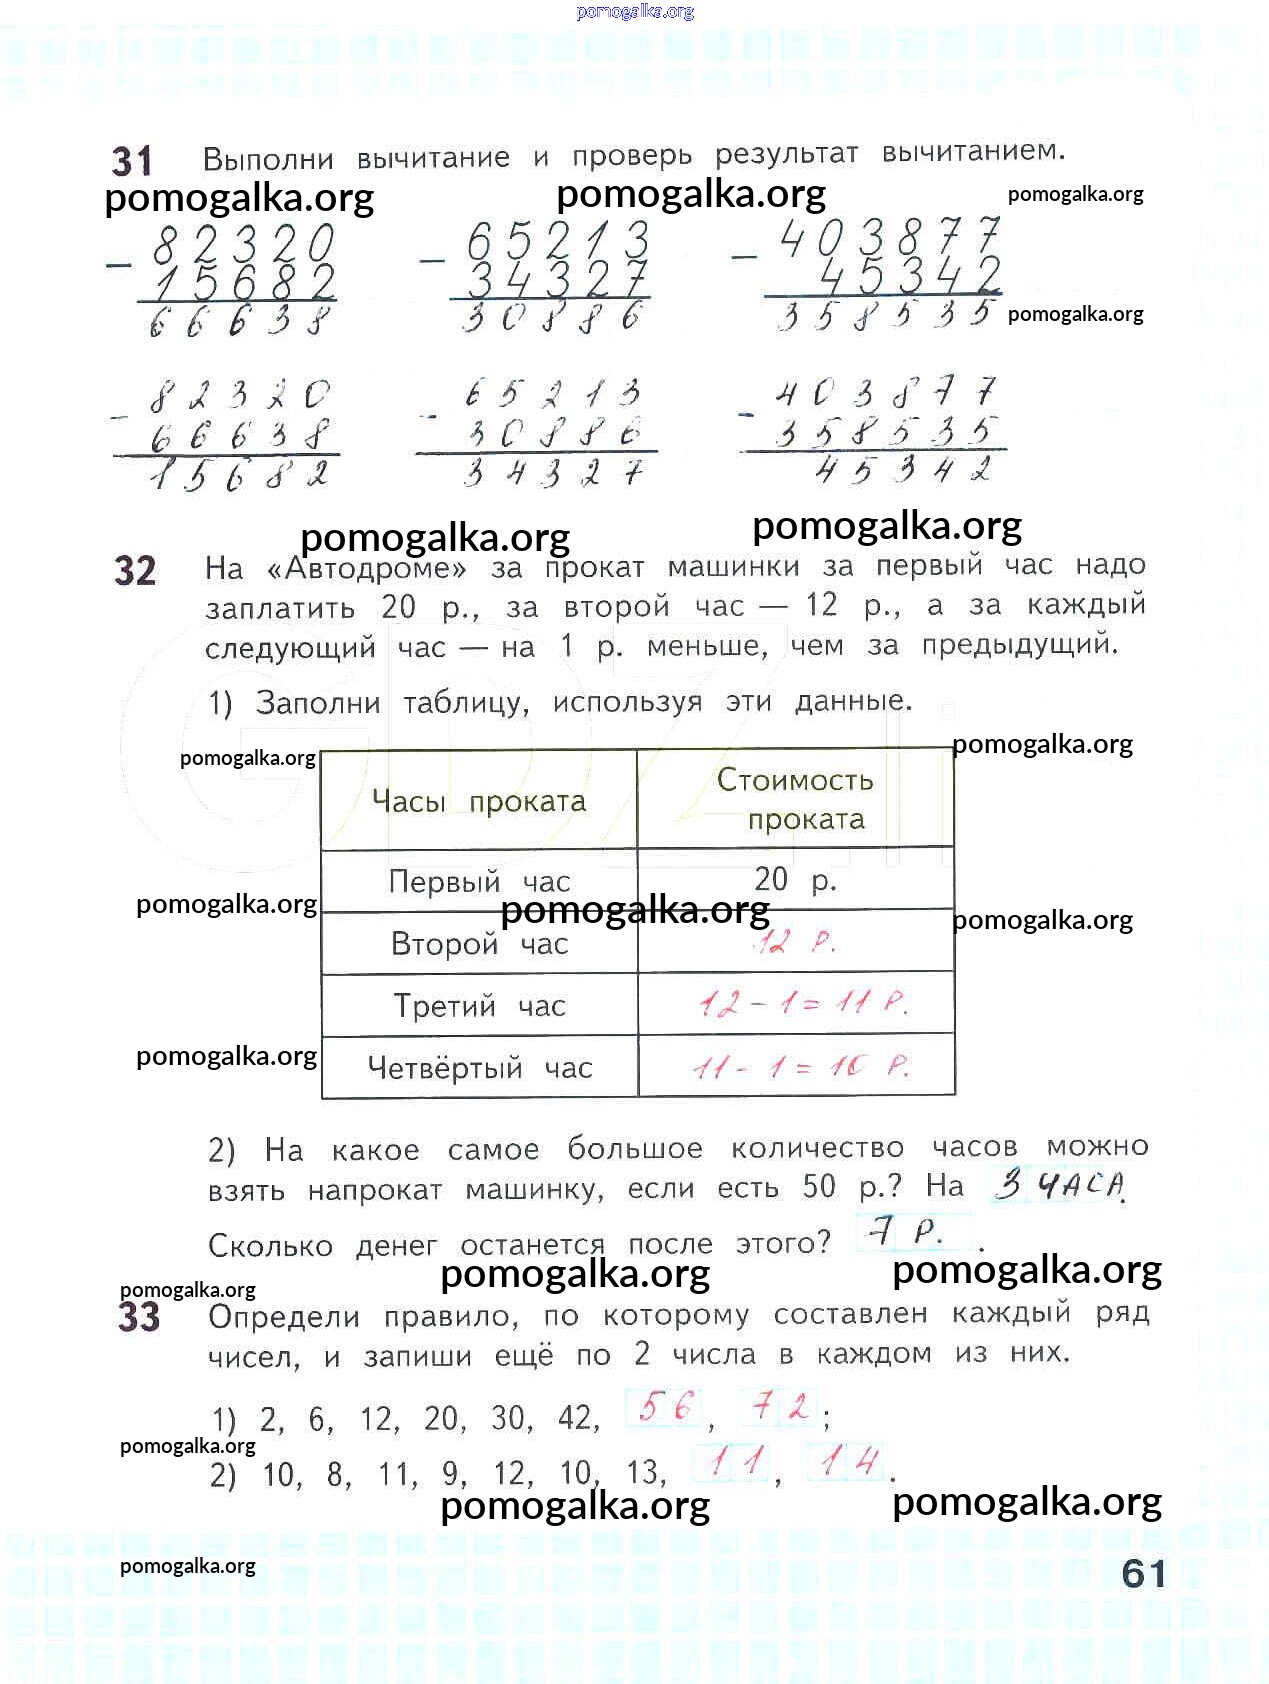 pomogalka.org
31 Выполни вычитание и проверь результат вычитанием.
pomogalka.org pomogalka.org pomogalka.org
− 82320 − 65213 − 403877
15682 34327 45342
66638 30886 358535
pomogalka.org
− 82320 − 65213 − 403877
66638 30886 358535
15682 34327 45342
pomogalka.org pomogalka.org
32 На «Автодроме» за прокат машинки за первый час надо
заплатить 20 р., за второй час — 12 р., а за каждый
следующий час — на 1 р. меньше, чем за предыдущий.
1) Заполни таблицу, используя эти данные.
pomogalka.org pomogalka.org
Часы проката Стоимость
проката
Первый час 20 р.
pomogalka.org pomogalka.org pomogalka.org
Второй час 12 р.
Третий час 12 - 1 = 11 р.
pomogalka.org
Четвёртый час 11 - 1 = 10 р.
2) На какое самое большое количество часов можно
взять напрокат машинку, если есть 50 р.? На 3 ЧАСА.
Сколько денег останется после этого? 7 р. .
pomogalka.org pomogalka.org
pomogalka.org
33 Определи правило, по которому составлен каждый ряд
чисел, и запиши ещё по 2 числа в каждом из них.
1) 2, 6, 12, 20, 30, 42, 56, 72;
pomogalka.org
2) 10, 8, 11, 9, 12, 10, 13, 11, 14.
pomogalka.org pomogalka.org
pomogalka.org
61
GDZ